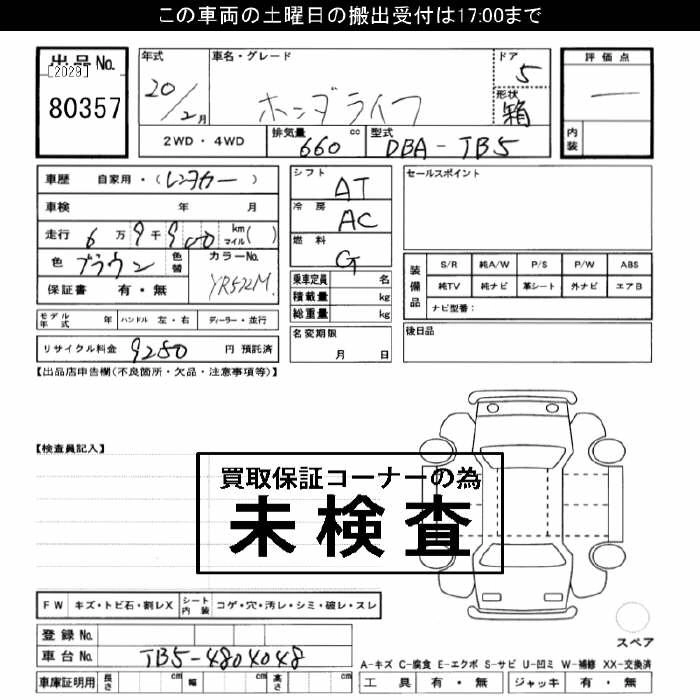 この車両の土曜日の搬出受付は17:00まで
出品No.
[2029]
80357
年式
20/2月
車名・グレード
ホンダライフ
ドア
5
形状
箱
評価点
―
内装
2WD・4WD
排気量
660 cc
型式
DBA-TB5
車歴 自家用・(レンタカー)
車検 年 月
走行 6万9千900 km マイル( )
色 ブラウン 色替
カラーNo.
YR572M
保証書 有・無
モデル年式 年 ハンドル 左・右 ディーラー・並行
リサイクル料金 9280 円 預託済
シフト
AT
冷房
AC
燃料
G
乗車定員 名
積載量 kg
総重量 kg
名変期限
月 日
セールスポイント
装備品
S/R 純A/W P/S P/W ABS
純TV 純ナビ 革シート 外ナビ エアB
ナビ型番:
後日品
【出品店申告欄(不良箇所・欠品・注意事項等)】
【検査員記入】
買取保証コーナーの為
未検査
FW キズ・トビ石・割レX シート内装 コゲ・穴・汚レ・シミ・破レ・スレ
スペア
登録No.
車台No. TB5-4804048
車庫証明用 長さ cm 幅 cm 高さ cm
A-キズ C-腐食 E-エクボ S-サビ U-凹ミ W-補修 XX-交換済
工具 有・無 ジャッキ 有・無